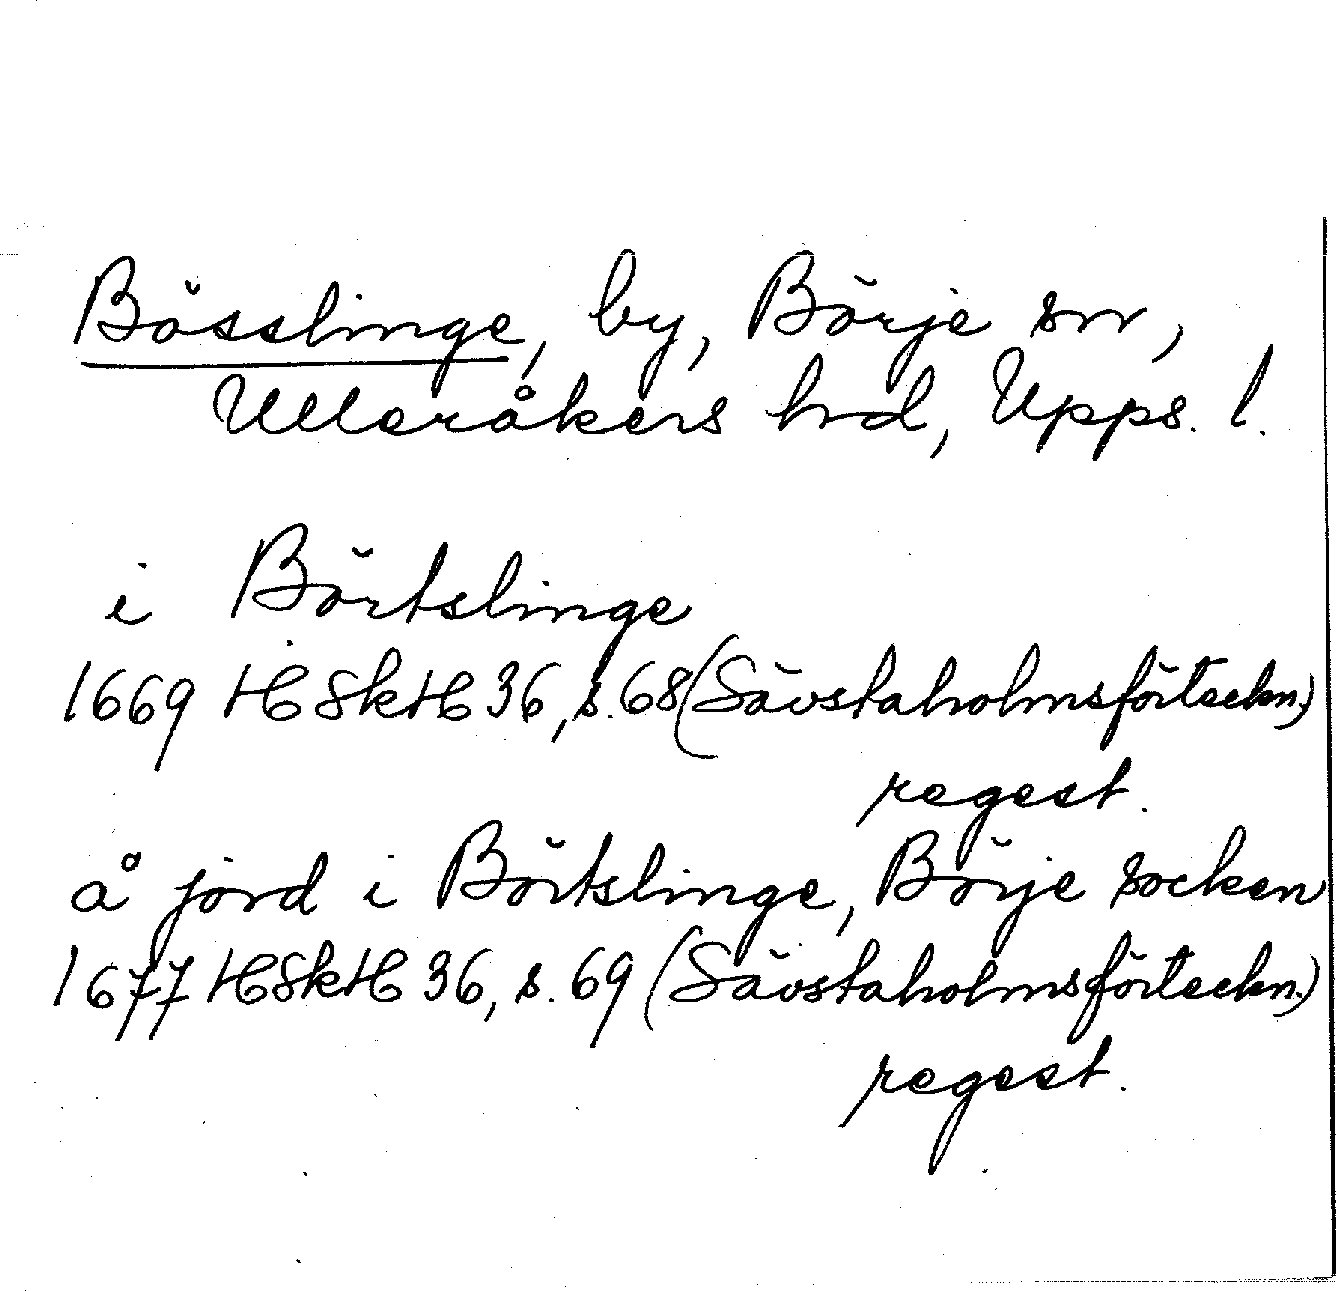 Bösslinge, by, Börje sn,
Ulleråkers hrd, Upps. l.
i Börtslinge
1669 HSkH 36, s. 68 (Sävstaholmsförteckn.)
regest.
å jord i Börtslinge, Börje socken
1677 HSkH 36, s. 69 (Sävstaholmsförteckn.)
regest.